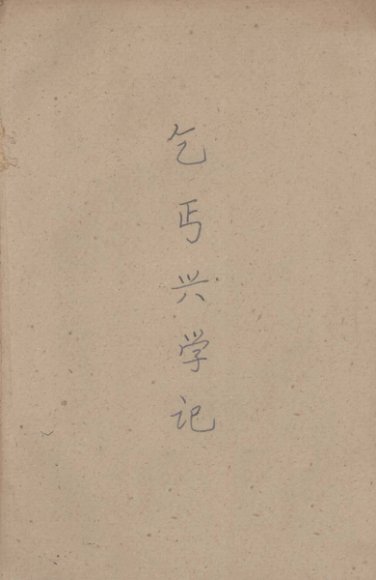 乞丐兴学记